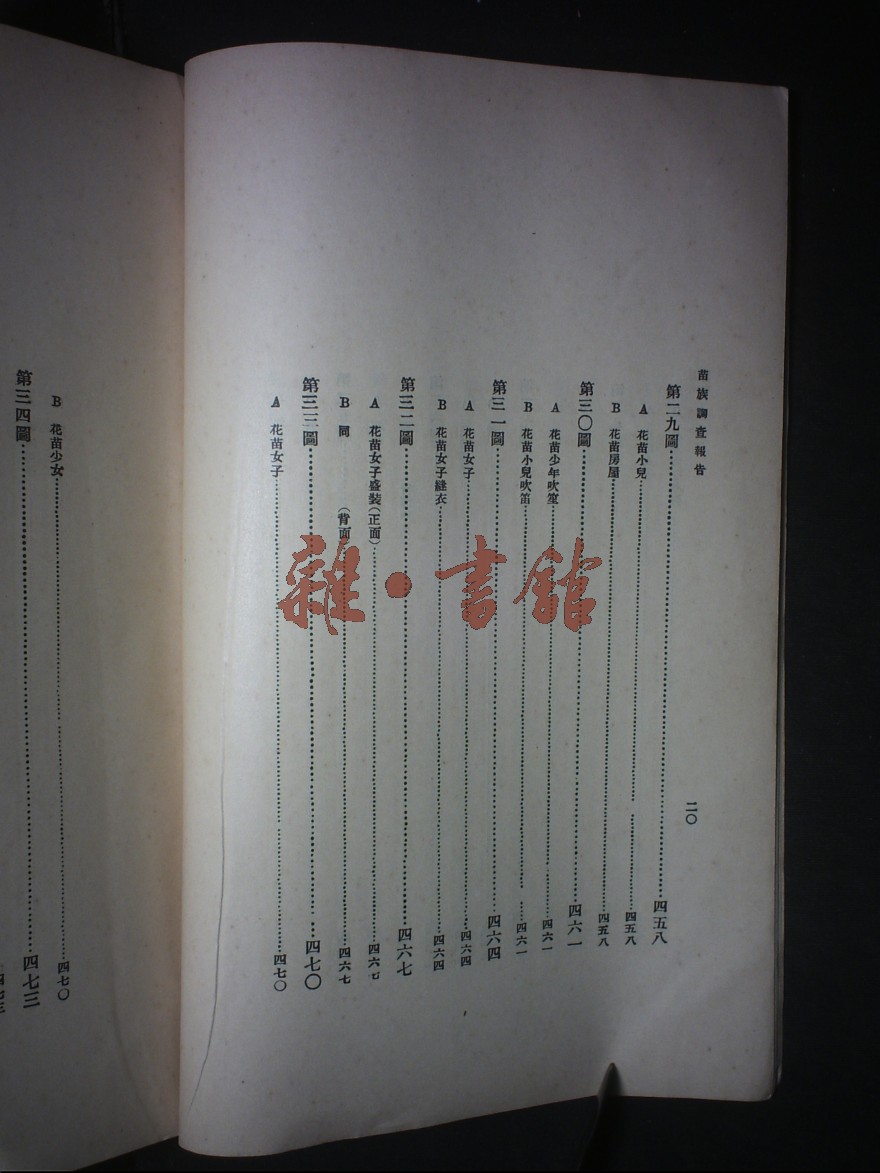 苗族調查報告
二〇
第二九圖……四五八
A 花苗小兒……四五八
B 花苗房屋……四五八
第三〇圖……四六一
A 花苗少年吹笙……四六一
B 花苗小兒吹笛……四六一
第三一圖……四六四
A 花苗女子……四六四
B 花苗女子縫衣……四六四
第三二圖……四六七
A 花苗女子盛裝(正面)……四六七
B 同 (背面)……四六七
第三三圖……四七〇
A 花苗女子……四七〇
B 花苗少女……四七〇
第三四圖……四七三
四七三
雜·書館